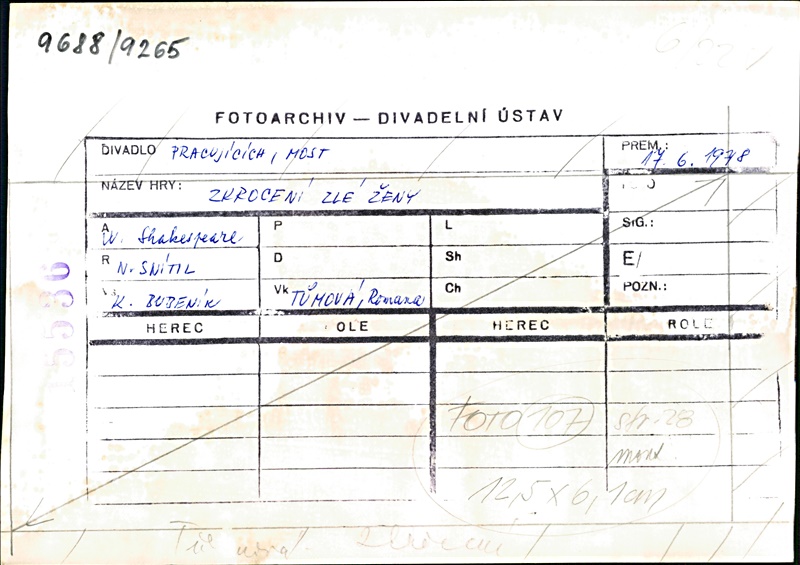 9688/9265
FOTOARCHIV — DIVADELNÍ ÚSTAV
DIVADLO PRACUJÍCÍCH, MOST
PREM.: 17. 6. 1978
NÁZEV HRY: ZKROCENÍ ZLÉ ŽENY
A W. Shakespeare P L SIG.:
R N. SNÍTIL D Sh E/
K. BUBENÍK Vk TŮMOVÁ, Romana Ch POZN.:
HEREC OLE HEREC ROLE
15536
FOTO 107 str. 28
most
12,5 x 6,1 cm